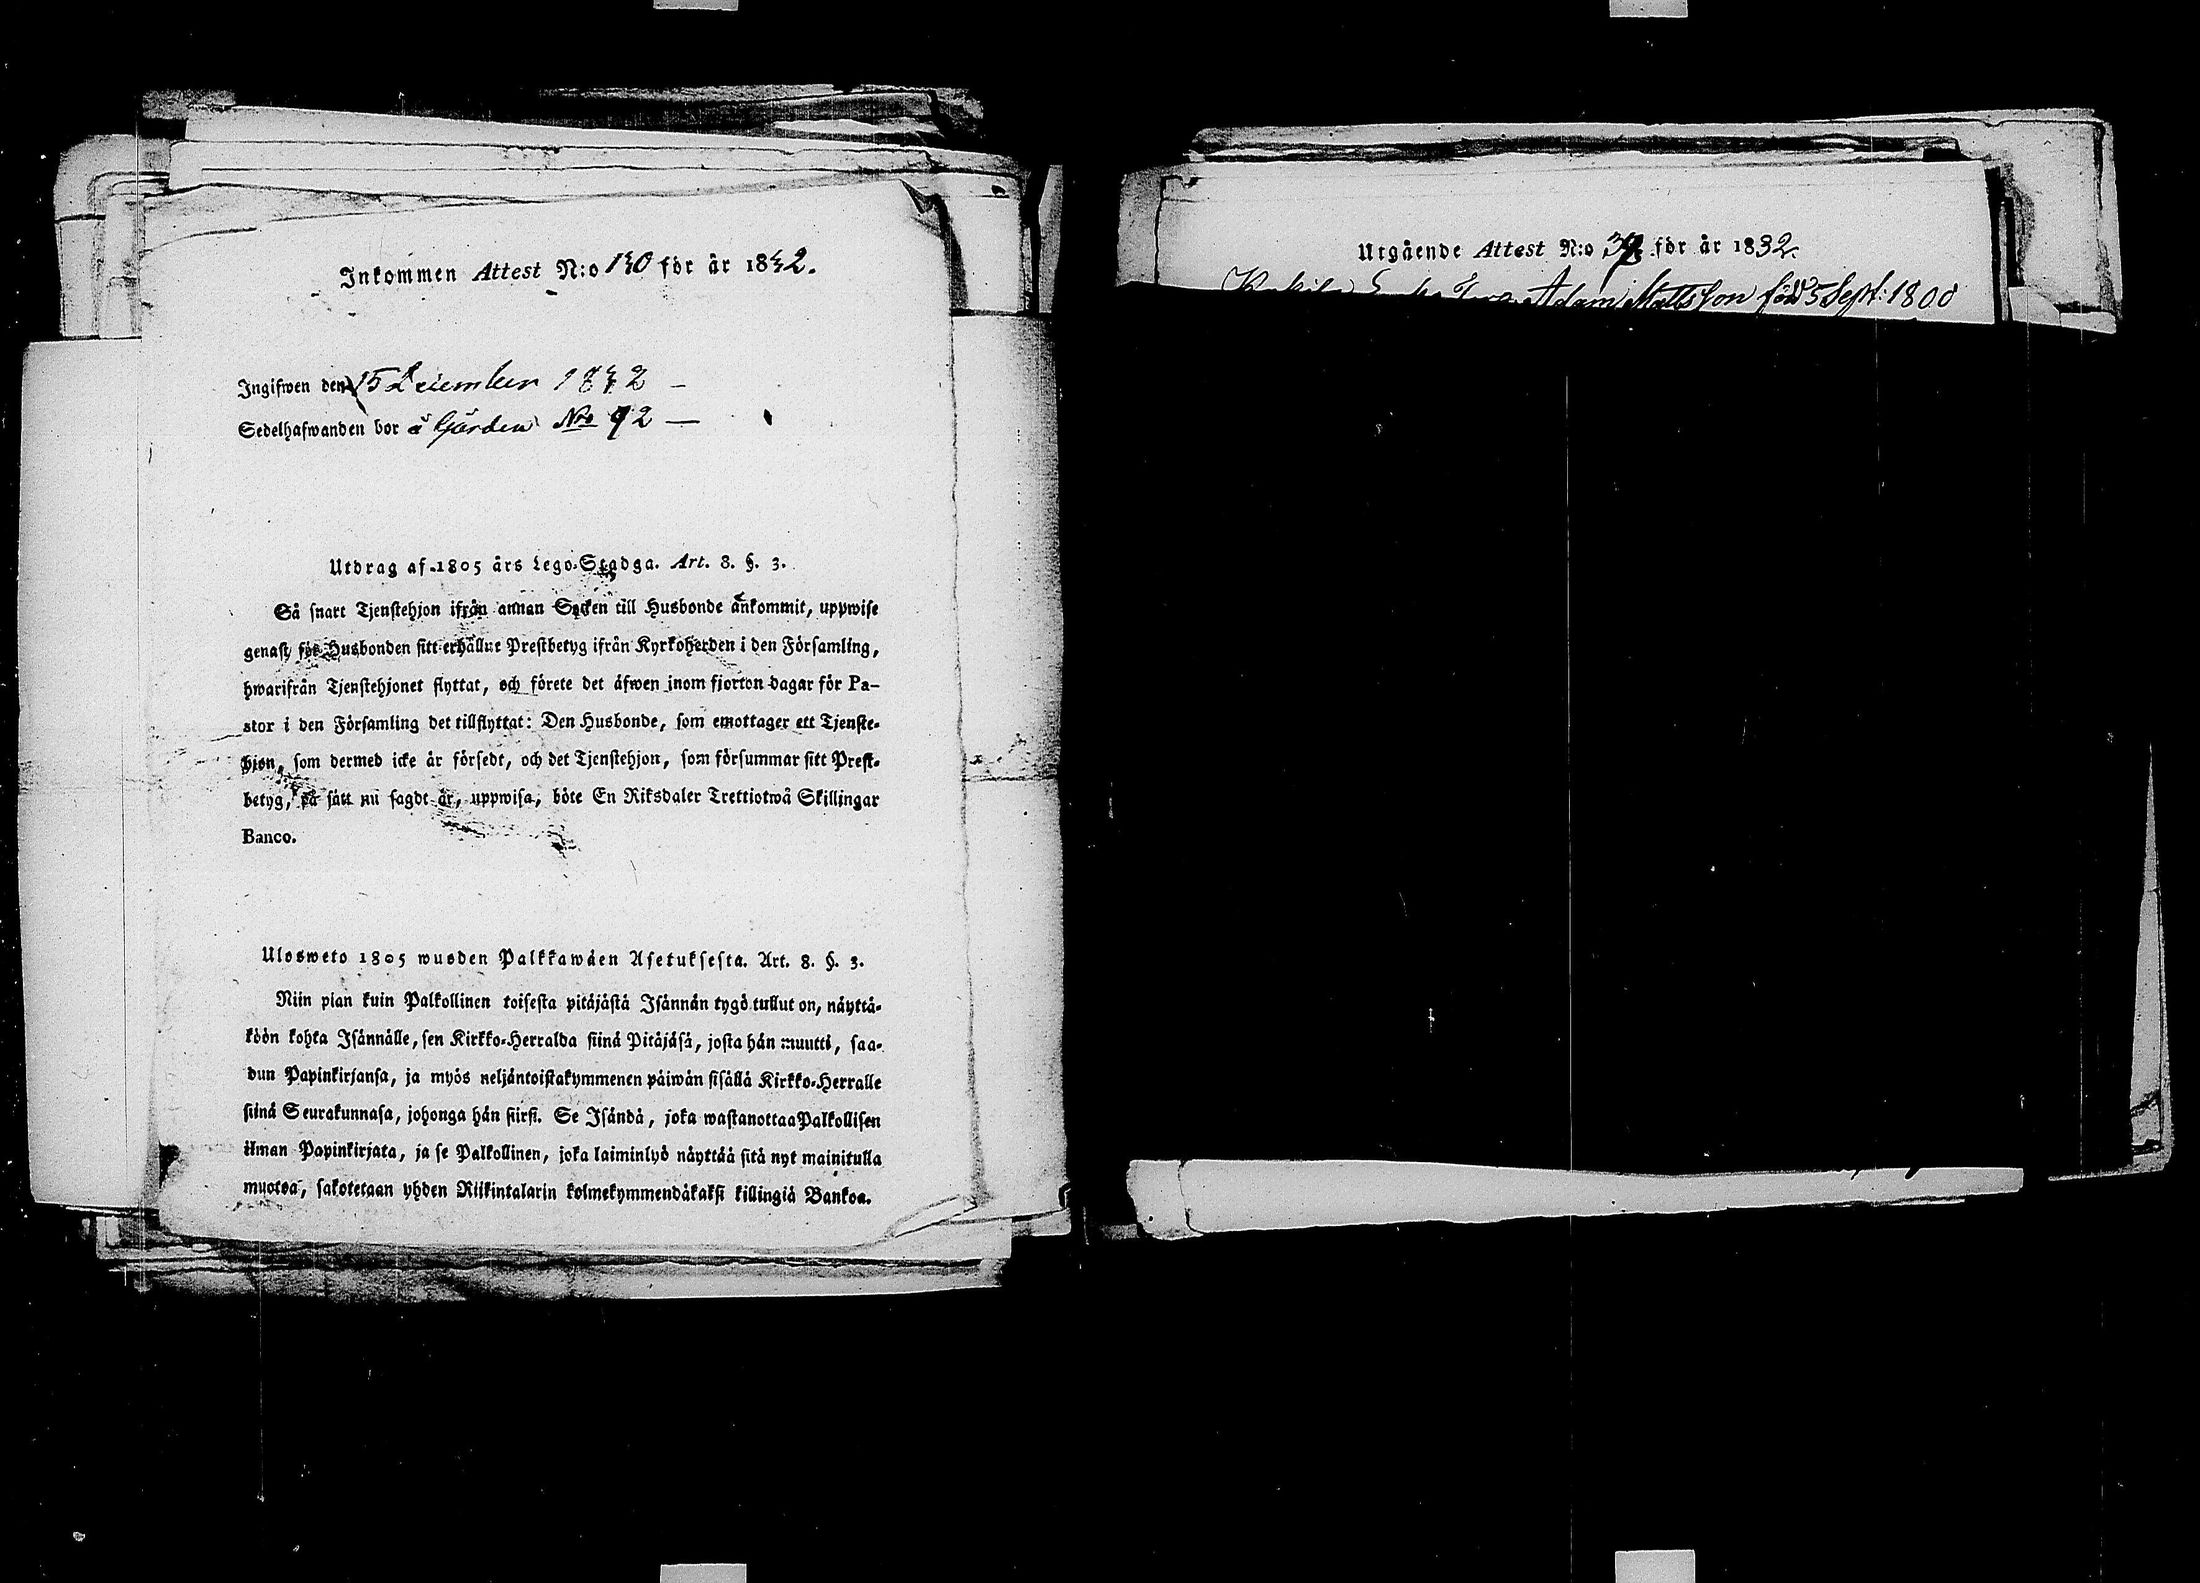 Inkommen Attest N:o 130 för år 1832.
Ingifwen den 15 December 1832 –
Sedelhafwanden bor å Gården Nro 92 —
Utdrag af 1805 års Lego-Stadga. Art. 8. §. 3.
Så snart Tjenstehjon ifrån annan Socken till Husbonde ankommit, uppwise
genast för Husbonden sitt erhållne Prestbetyg ifrån Kyrkoherden i den Församling,
hwarifrån Tjenstehjonet flyttat, och förete det äfwen inom fjorton dagar för Pa-
stor i den Församling det tillflyttat: Den Husbonde, som emottager ett Tjenste-
hjon, som dermed icke är försedt, och det Tjenstehjon, som försummar sitt Prest-
betyg, på sätt nu sagdt är, uppwisa, böte En Riksdaler Trettiotwå Skillingar
Banco.
Ulosweto 1805 wuoden Palkkawäen Asetuksesta. Art. 8. §. 3.
Niin pian kuin Palkollinen toisesta pitäjästä Isännän tygö tullut on, näyttä-
köön kohta Isännälle, sen Kirkko-Herralda siinä Pitäjäsä, josta hän muutti, saa-
dun Papinkirjansa, ja myös neljäntoistakymmenen päiwän sisällä Kirkko-Herralle
siinä Seurakunnasa, johonga hän siirsi. Se Isändä, joka wastanottaa Palkollisen
ilman Papinkirjata, ja se Palkollinen, joka laiminlyö näyttää sitä nyt mainitulla
muotoa, sakotetaan yhden Riikintalarin kolmekymmendäkaksi killingiä Bankoa.
Utgående Attest N:o för år 1832.
Adam Mattsson född 5 Sept: 1800